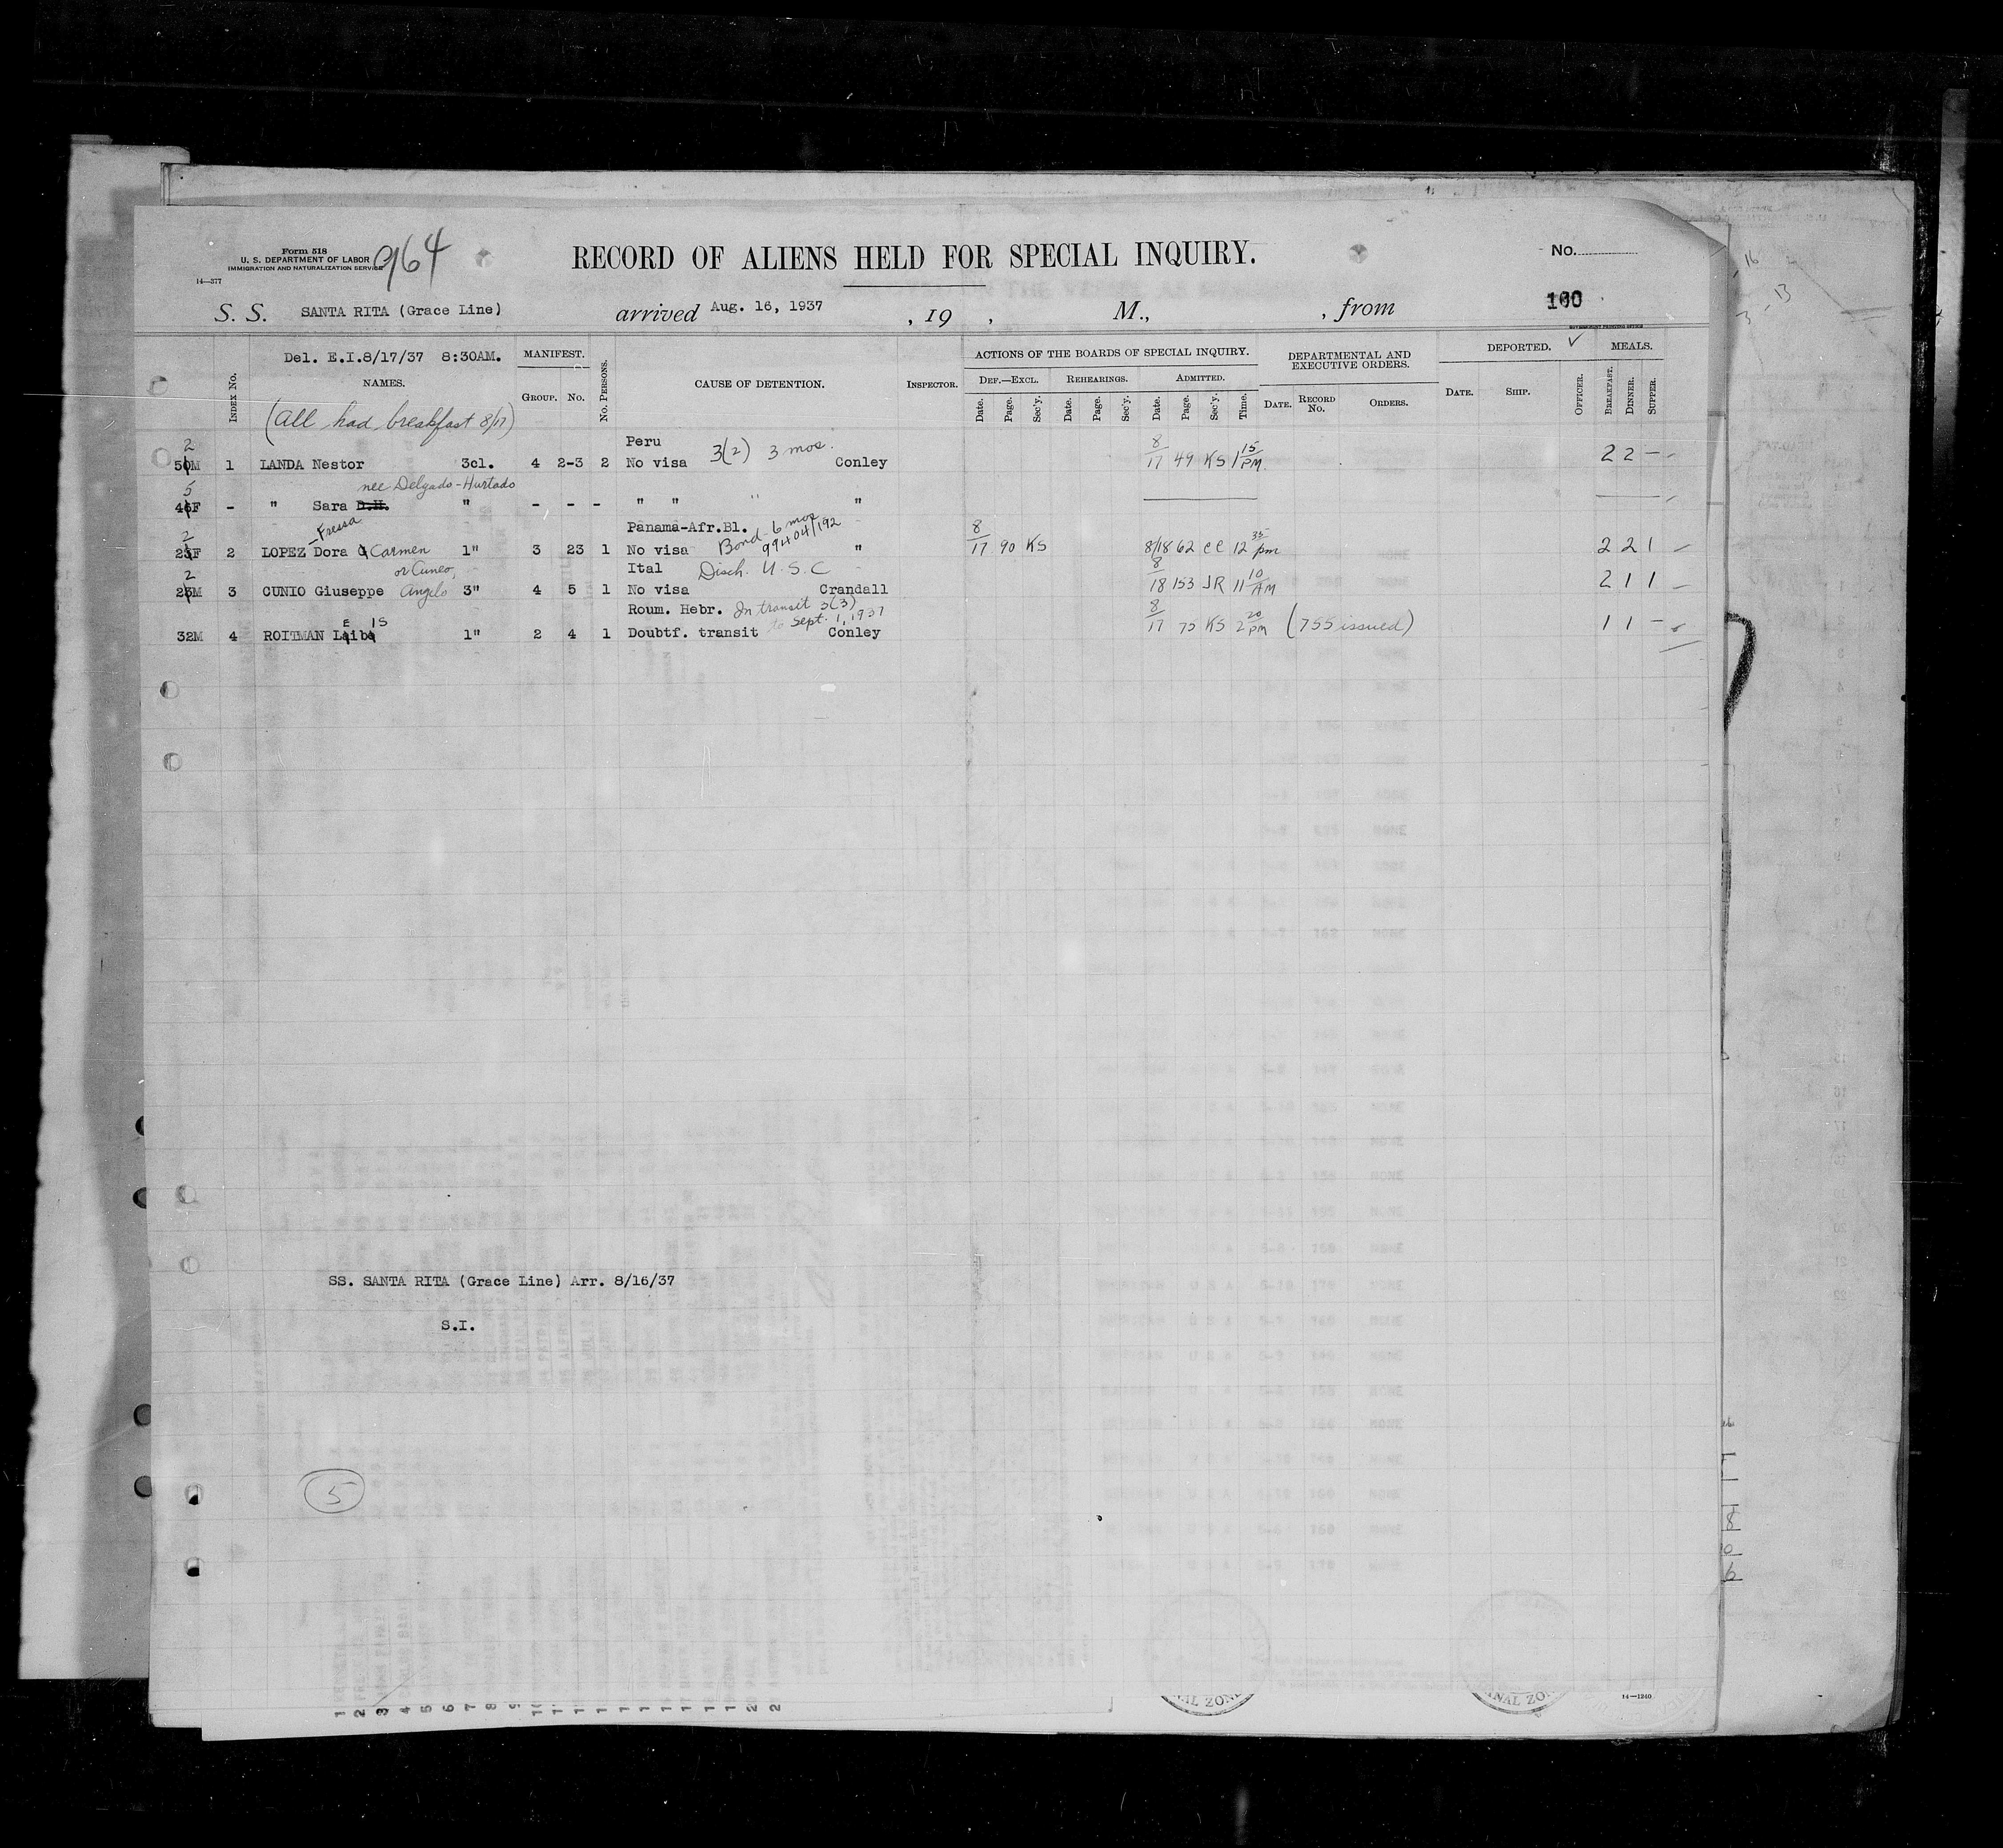 Form 518
U. S. DEPARTMENT OF LABOR
IMMIGRATION AND NATURALIZATION SERVICE
14—577
964
RECORD OF ALIENS HELD FOR SPECIAL INQUIRY.
No.
160
S. S. SANTA RITA (Grace Line) arrived Aug. 16, 1937 , 19 , M., , from
GOVERNMENT PRINTING OFFICE
Del. E.I.8/17/37 8:30AM.
NAMES.
(All had breakfast 8/17)
INDEX No.
MANIFEST.
GROUP. No.
No. PERSONS.
CAUSE OF DETENTION.
INSPECTOR.
ACTIONS OF THE BOARDS OF SPECIAL INQUIRY.
DEF.—EXCL. REHEARINGS. ADMITTED.
Date. Page. Sec'y. Date. Page. Sec'y. Date. Page. Sec'y. Time.
DEPARTMENTAL AND EXECUTIVE ORDERS.
DATE. RECORD No. ORDERS.
DEPORTED. ✓
DATE. SHIP. OFFICER.
MEALS.
BREAKFAST. DINNER. SUPPER.
2 Peru 3(2) 3 mos.
50M 1 LANDA Nestor 3cl. 4 2-3 2 No visa Conley 8/17 49 KS 1 15 PM 2 2 -
5 nee Delgado-Hurtado
46F - " Sara D.H. " - - - " " " "
2 Fressa Panama-Afr.Bl. Bond 6 mos 99404/192
2F 2 LOPEZ Dora Carmen 1" 3 23 1 No visa " 8/17 90 KS 8/18 62 CC 12 35 pm 2 2 1
2 or Cuneo, Ital Disch. U.S.C
2M 3 CUNIO Giuseppe Angelo 3" 4 5 1 No visa Crandall 8/18 153 JR 11 10 AM 2 1 1
E IS Roum. Hebr. In transit 3(3) to Sept. 1, 1937
32M 4 ROITMAN Laiba 1" 2 4 1 Doubtf. transit Conley 8/17 75 KS 2 20 pm (755 issued) 1 1 -
SS. SANTA RITA (Grace Line) Arr. 8/16/37
S.I.
5
14—1240